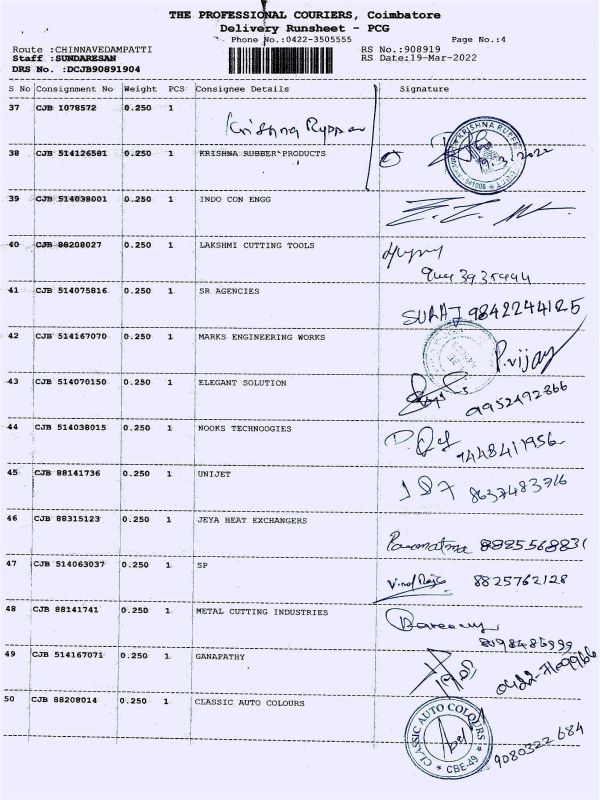 THE PROFESSIONAL COURIERS, Coimbatore
Delivery Runsheet - PCG
Phone No.:0422-3505555 Page No.:4
Route :CHINNAVEDAMPATTI RS No.:908919
Staff :SUNDARESAN RS Date:19-Mar-2022
DRS No. :DCJB90891904
S No Consignment No Weight PCS Consignee Details Signature
37 CJB 1078572 0.250 1
Krishna
38 CJB 514126581 0.250 1 KRISHNA RUBBER PRODUCTS
19.3.2022
39 CJB 514038001 0.250 1 INDO CON ENGG
40 CJB 88208027 0.250 1 LAKSHMI CUTTING TOOLS
41 CJB 514075816 0.250 1 SR AGENCIES
SURAJ 9842244125
42 CJB 514167070 0.250 1 MARKS ENGINEERING WORKS
P.vijay
43 CJB 514070150 0.250 1 ELEGANT SOLUTION
9952492866
44 CJB 514038015 0.250 1 NOOKS TECHNOOGIES
9448411956
45 CJB 88141736 0.250 1 UNIJET
8637483716
46 CJB 88315123 0.250 1 JEYA HEAT EXCHANGERS
8825568831
47 CJB 514063037 0.250 1 SP
8825762128
48 CJB 88141741 0.250 1 METAL CUTTING INDUSTRIES
49 CJB 514167071 0.250 1 GANAPATHY
50 CJB 88208014 0.250 1 CLASSIC AUTO COLOURS
CLASSIC AUTO COLOURS
* CBE-49 *
9080322684